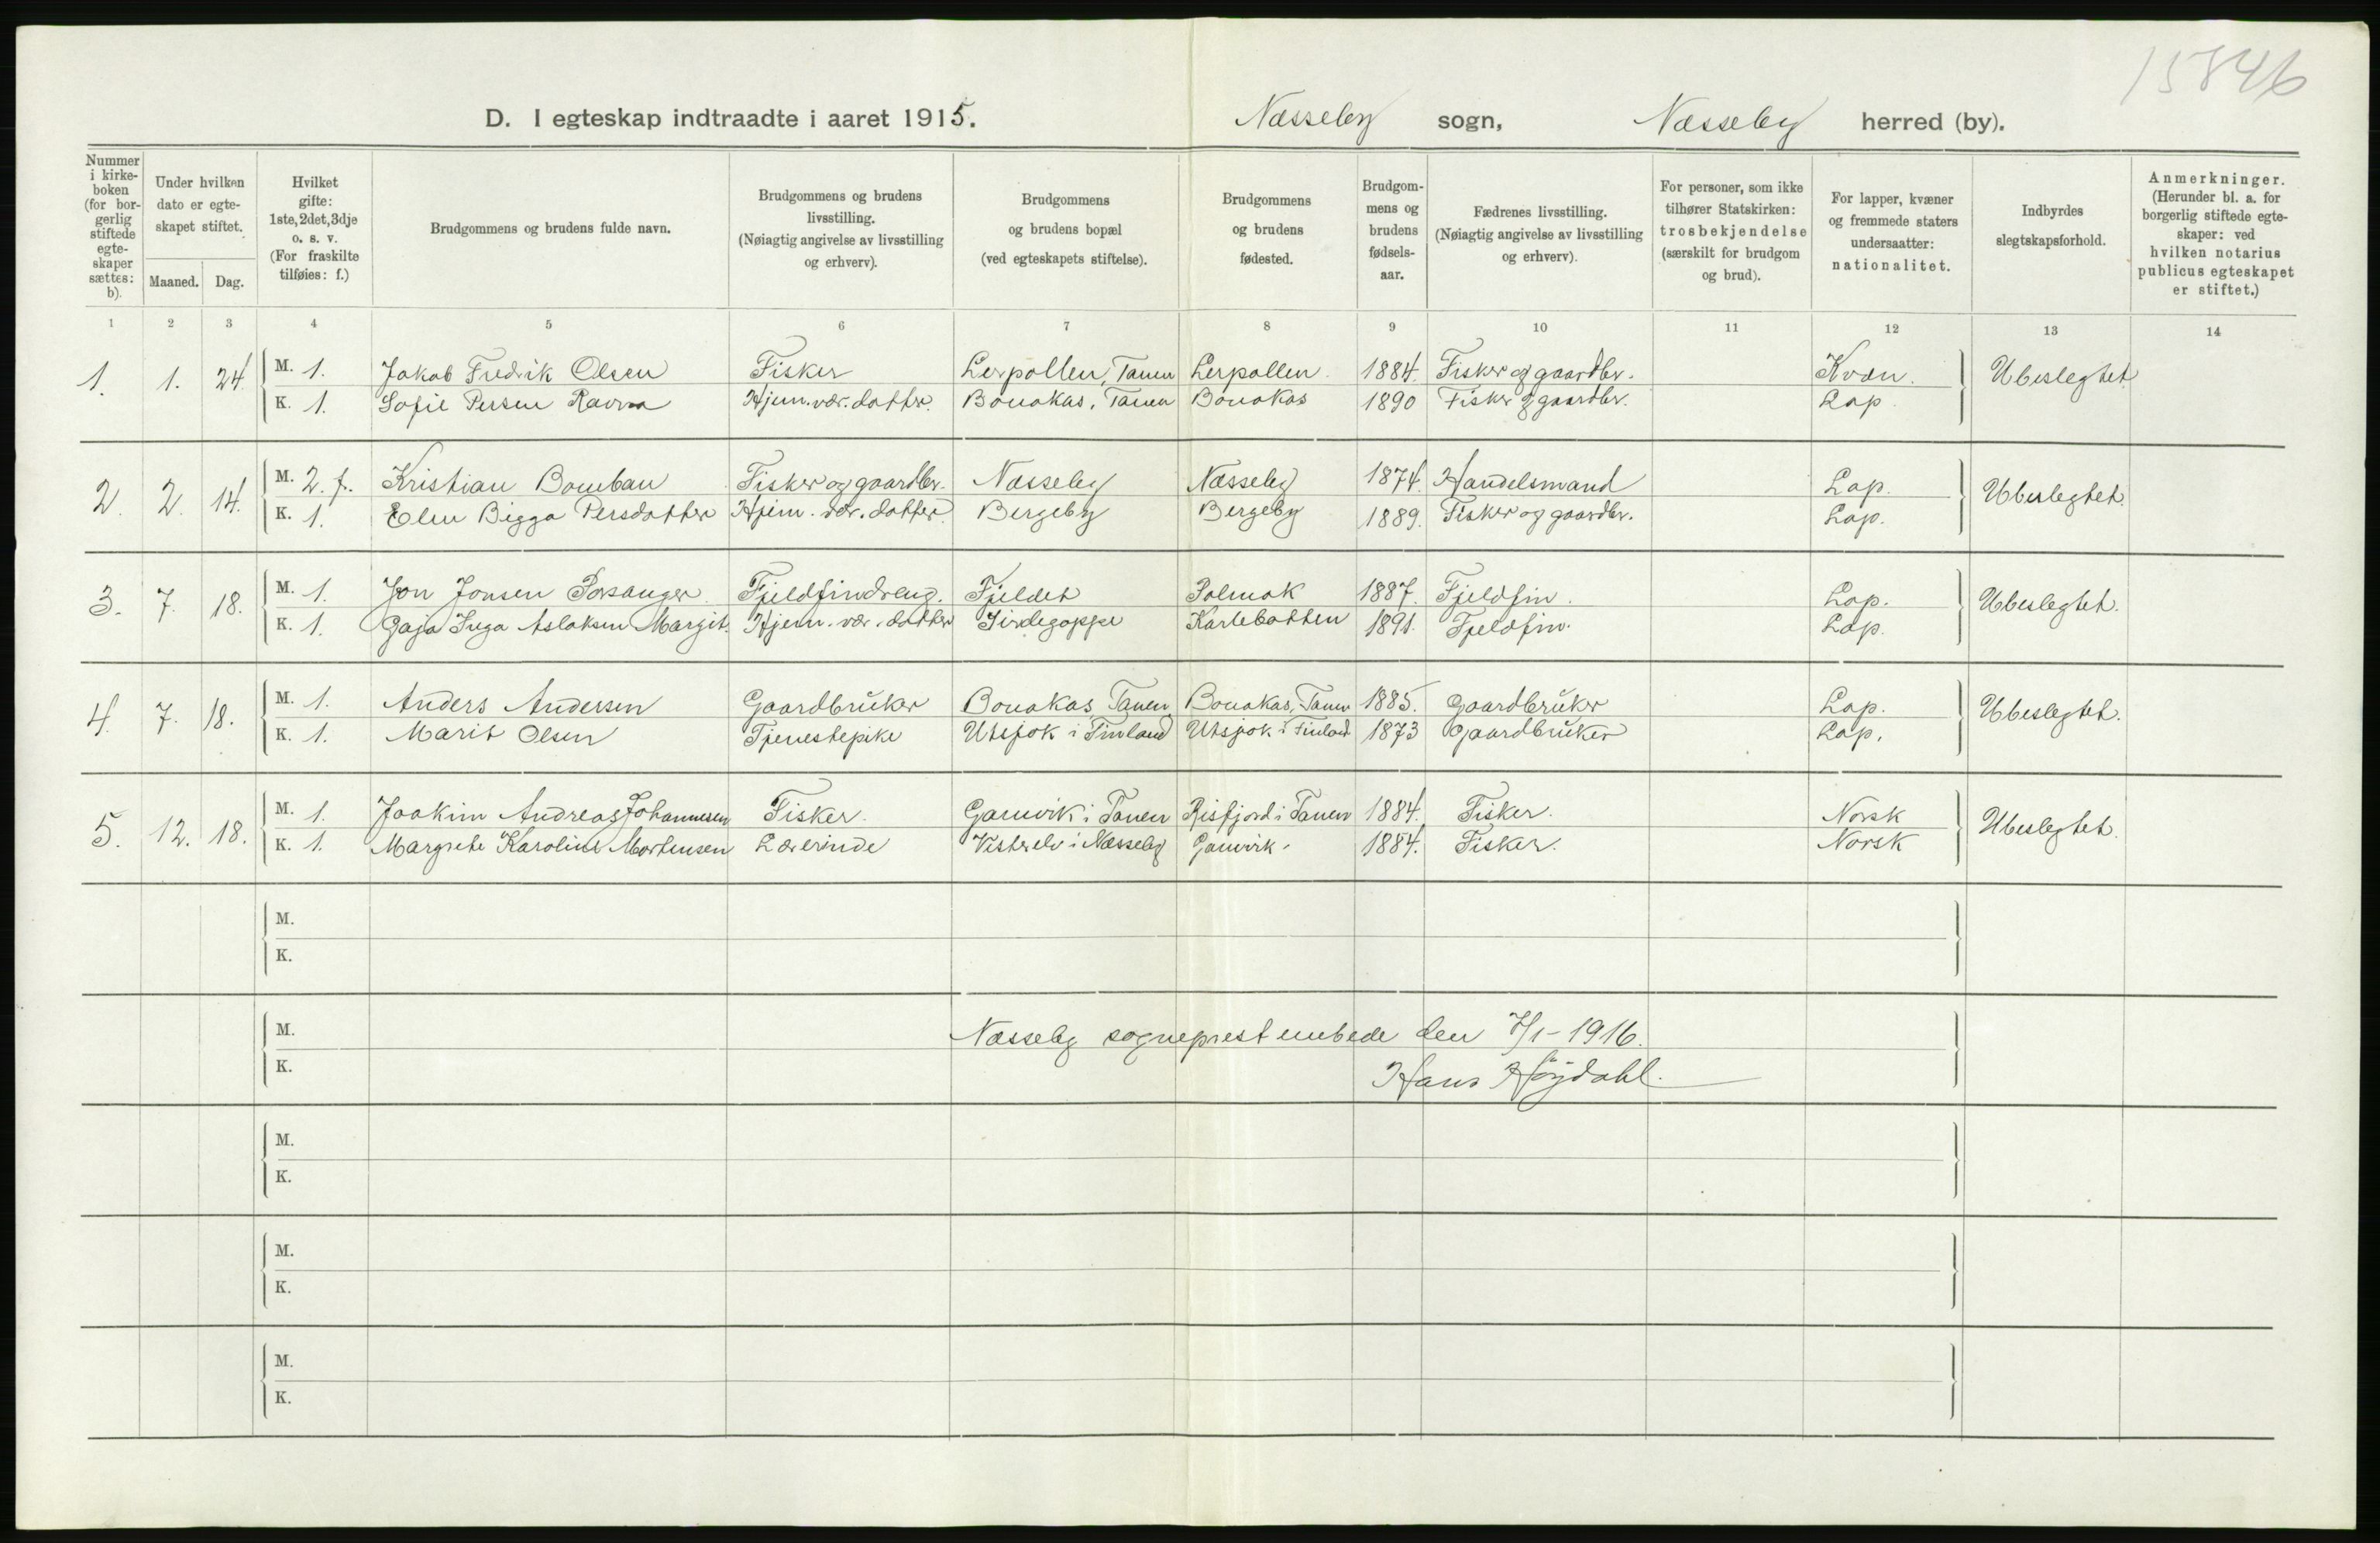 15846
D. I egteskap indtraadte i aaret 1915. Næsseby sogn, Næsseby herred (by).
Nummer i kirke-boken (for bor-gerlig stiftede egte-skaper sættes: b). | Under hvilken dato er egte-skapet stiftet. Maaned. Dag. | Hvilket gifte: 1ste, 2det, 3dje o. s. v. (For fraskilte tilføies: f.) | Brudgommens og brudens fulde navn. | Brudgommens og brudens livsstilling. (Nøiagtig angivelse av livsstilling og erhverv). | Brudgommens og brudens bopæl (ved egteskapets stiftelse). | Brudgommens og brudens fødested. | Brudgom-mens og brudens fødsels-aar. | Fædrenes livsstilling. (Nøiagtig angivelse av livsstilling og erhverv). | For personer, som ikke tilhører Statskirken: trosbekjendelse (særskilt for brudgom og brud). | For lapper, kvæner og fremmede staters undersaatter: nationalitet. | Indbyrdes slegtskapsforhold. | Anmerkninger. (Herunder bl. a. for borgerlig stiftede egte-skaper: ved hvilken notarius publicus egteskapet er stiftet.)
1 2 3 4 5 6 7 8 9 10 11 12 13 14
1. 1. 24. M. 1. Jakob Fredrik Olsen Fisker Lerpollen, Tanen Lerpollen. 1884. Fisker og gaardbr. Kvæn. Ubeslegtet
K. 1. Sofie Persen Ravna Hjem. vær. datter. Bonakas, Tanen Bonakas 1890 Fisker og gaardbr. Lap
2. 2. 14. M. 2. f. Kristian Bomban Fisker og gaardbr. Næsseby Næsseby 1874. Handelsmand Lap. Ubeslegtet.
K. 1. Elen Bigga Persdatter Hjem. vær. datter. Bergeby Bergeby 1889. Fisker og gaardbr. Lap.
3. 7. 18. M. 1. Jon Jonsen Porsanger. Fjeldfindreng. Fjeldet Polmak 1887. Fjeldfin. Lap. Ubeslegtet.
K. 1. Gaja Inga Aslaksen Margit. Hjem. vær. datter Sirdegoppe Karlebotten 1891. Fjeldfin. Lap.
4. 7. 18. M. 1. Anders Andersen Gaardbruker Bonakas Tanen Bonakas, Tanen 1885. Gaardbruker Lap. Ubeslegtet.
K. 1. Marit Olsen Tjenestepike Utsjok i Finland Utsjok i Finland 1873 Gaardbruker Lap.
5. 12. 18. M. 1. Joakim Andreas Johannesen Fisker. Gamvik i Tanen Risfjord i Tanen 1884. Fisker. Norsk Ubeslegtet.
K. 1. Margrete Karoline Mortensen Lærerinde Vesterelv i Næsseby Gamvik. 1884. Fisker. Norsk
M.
K.
M. Næsseby sogneprestembede den 7/1-1916.
K. Hans Høydahl.
M.
K.
M.
K.
M.
K.